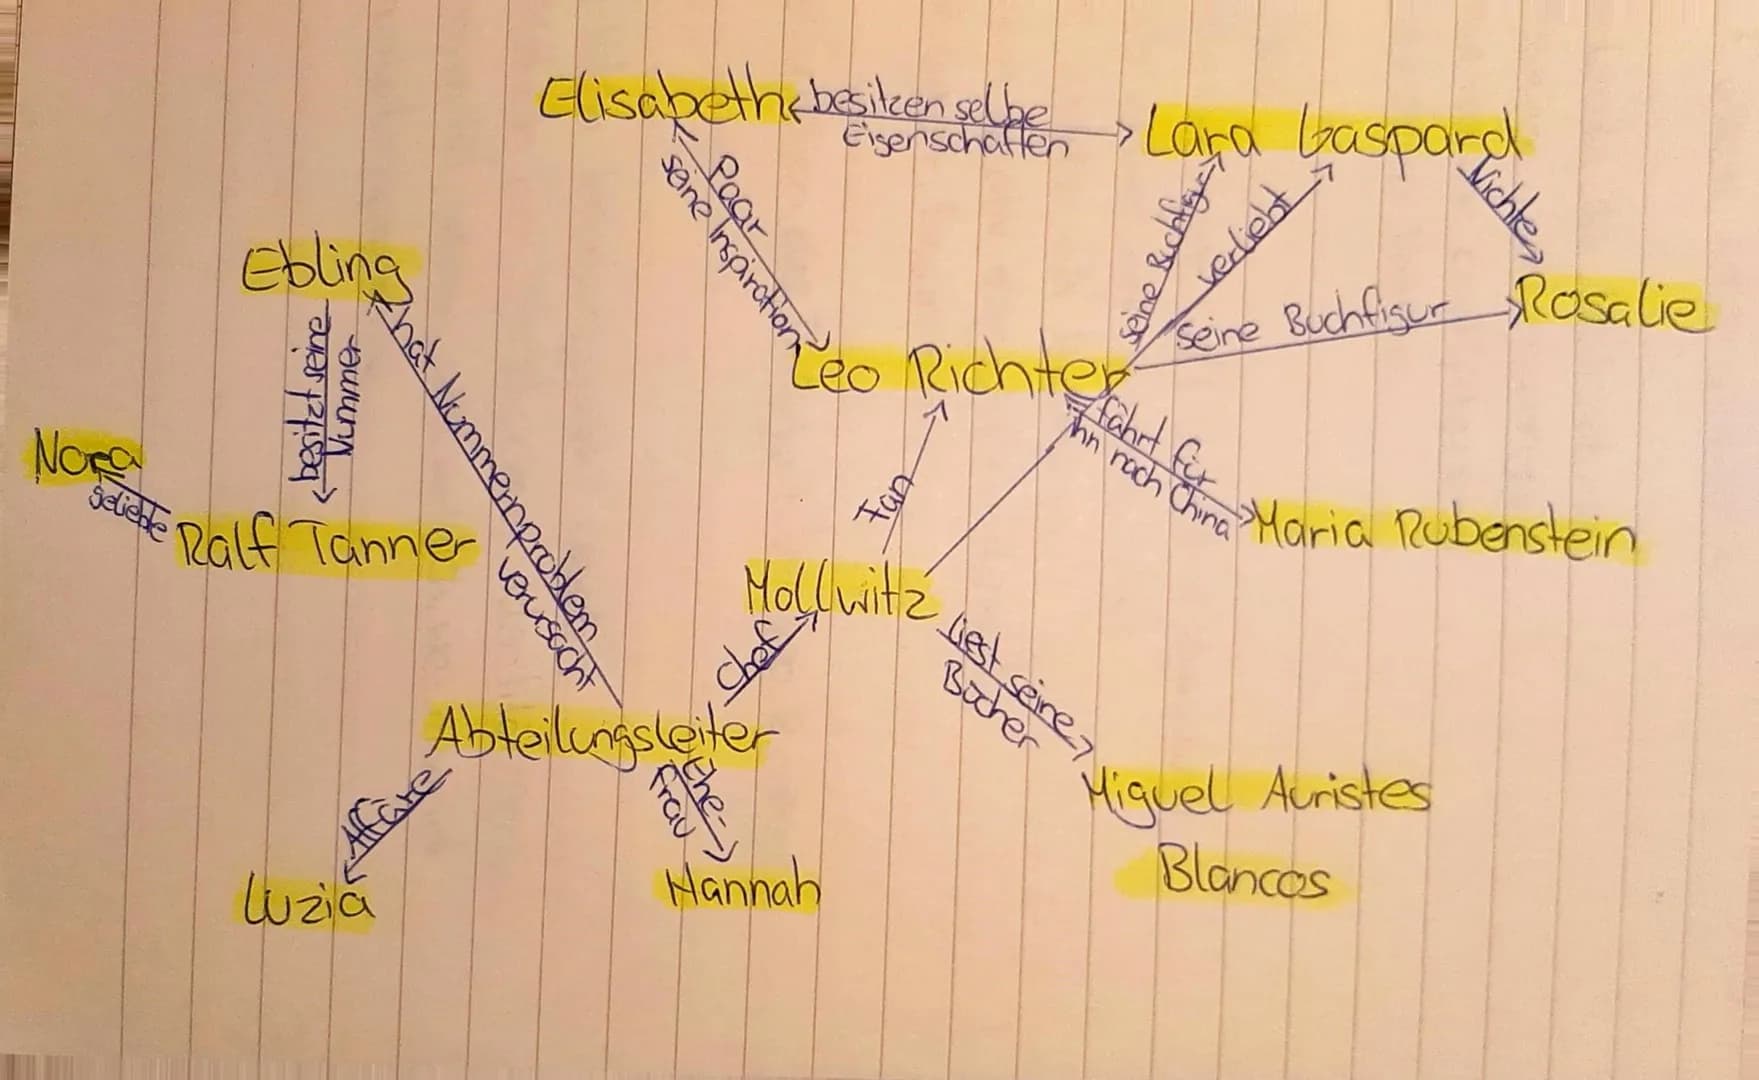 Elisabeth
besitzen selbe
Eigenschaften
Lara Gaspard
Paar
seine Inspiration
seine Buchfigur
verliebt
Nichte
Ebling
Rosalie
seine Buchfigur
besitzt seine
Nummer
hat Nummernproblem
verursacht
Leo Richter
Nora
geliebte
fährt für
ihn nach China
Fan
Ralf Tanner
Maria Rubenstein
Mollwitz
Chef
liest seine
Bücher
Abteilungsleiter
Affäre
Ehe-
frau
Miguel Auristes
Blancos
Luzia
Hannah